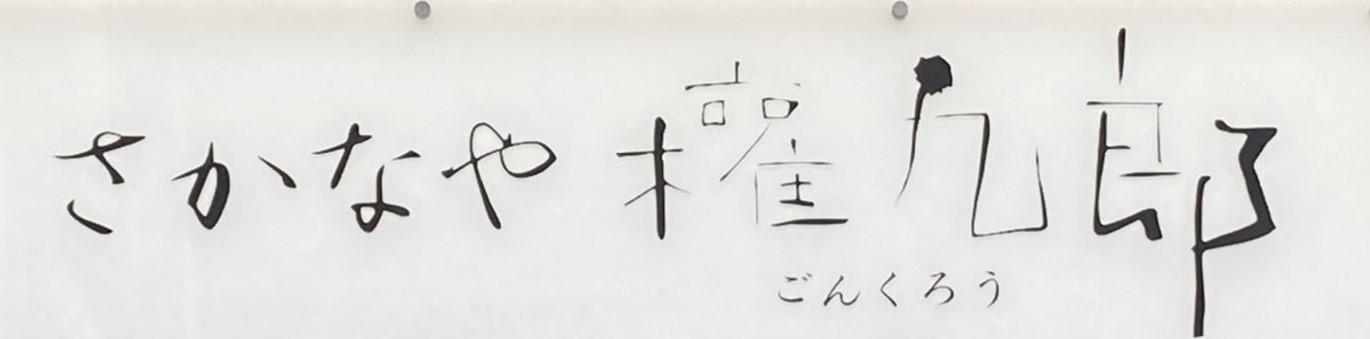 さかなや 権九郎
ごんくろう